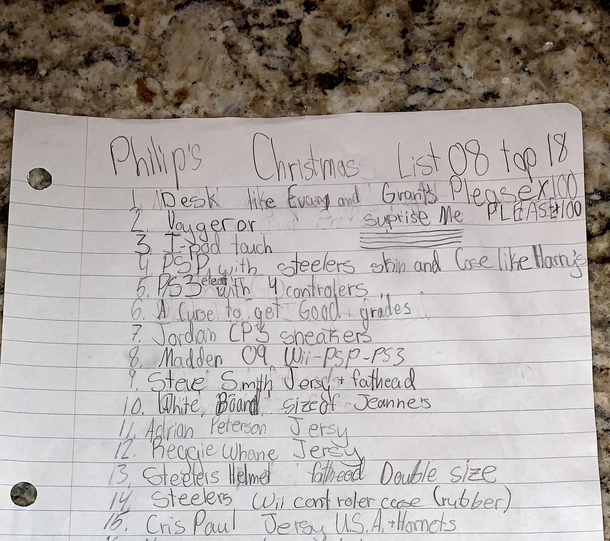 Philip's Christmas List 08 top 18
1. Desk like Evany and Grants Pleasex100
2. Voygeror suprise Me PLEASEx100
3. I pod touch
4 PSP with steelers skin and Case like Harry's
5. PS3 with 4 controlers
6. A Curse to get Good grades
7. Jordan CP3 sneakers
8. Madden 09 Wii-PSP-PS3
9. Steve Smith Jersy + fathead
10. White, Board, size of Jeanne's
11. Adrian Peterson Jersy
12. Reggie Whane Jersy
13. Steelers Helmet fathead Double size
14 Steelers Wii controler case (rubber)
15. Cris Paul Jersy U.S.A.+Hornets